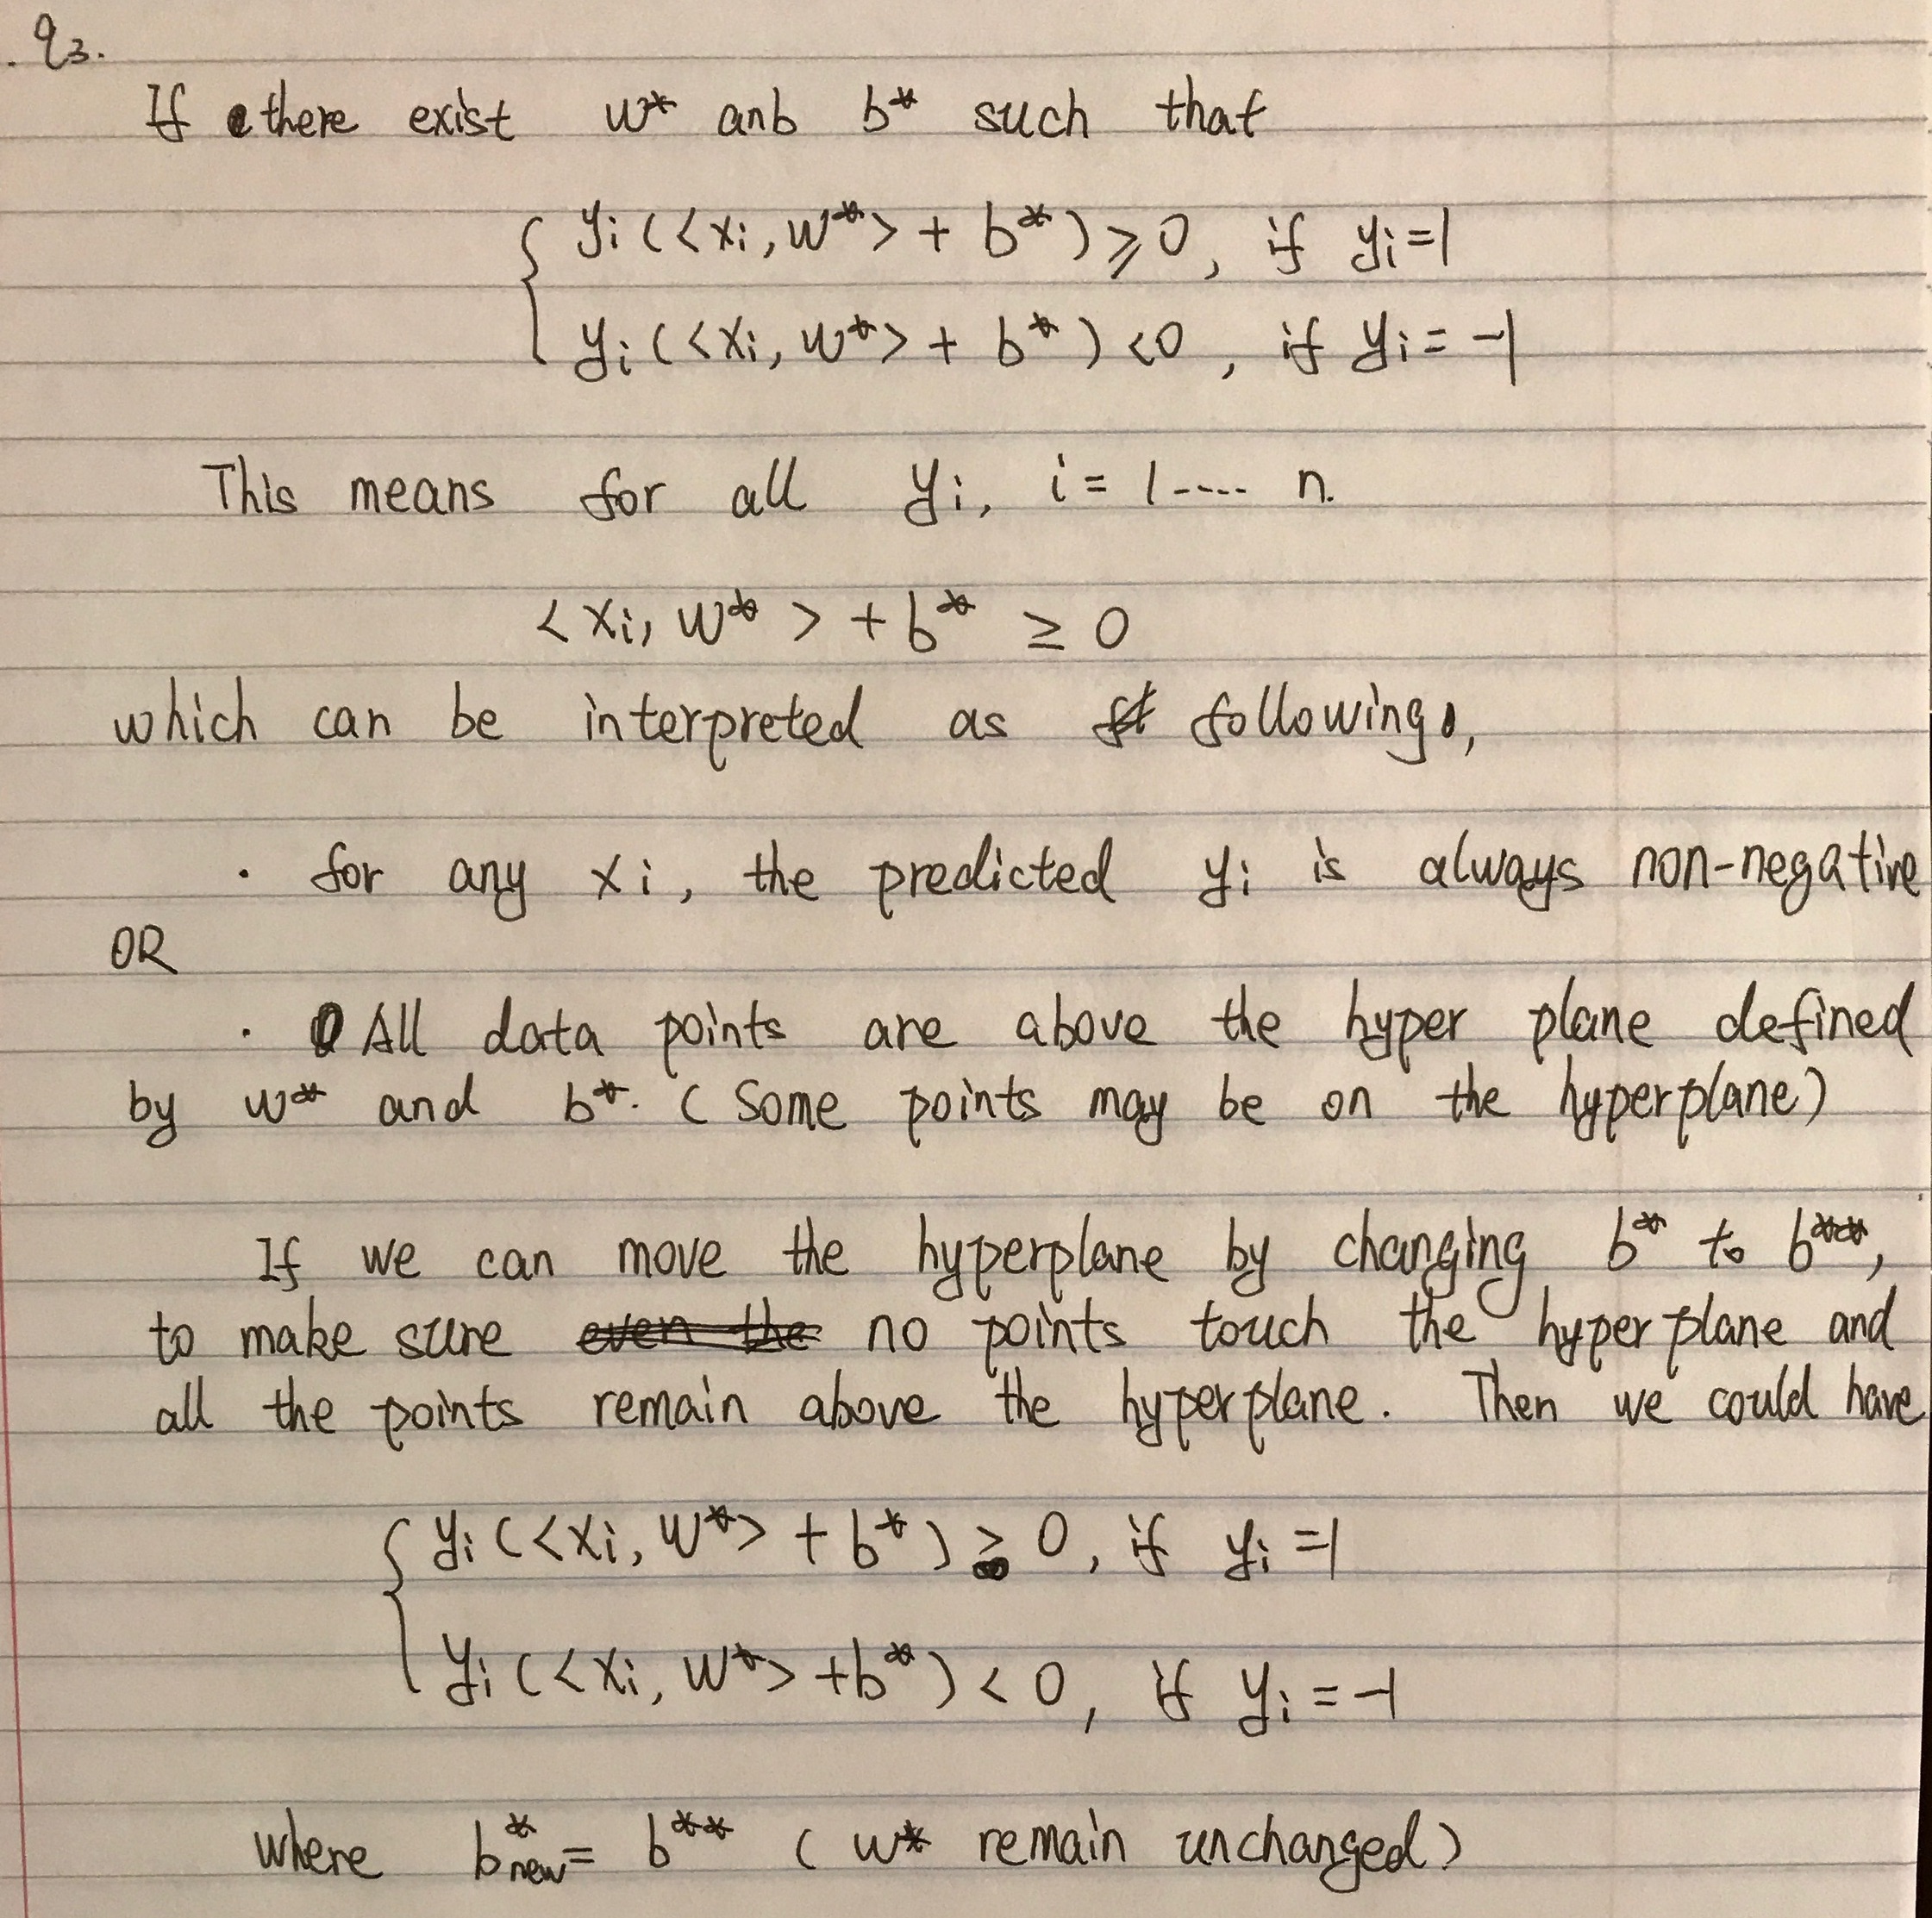 . q3.
If there exist w* anb b* such that
{ yi(<xi, w*> + b*) ⩾ 0, if yi=1
yi(<xi, w*> + b*) <0, if yi=-1
This means for all yi, i= 1---- n.
<xi, w*> + b* ≥ 0
which can be interpreted as following,
· for any xi, the predicted yi is always non-negative
OR
· All data points are above the hyper plane defined
by w* and b*. (Some points may be on the hyperplane)
If we can move the hyperplane by changing b* to b**,
to make sure even the no points touch the hyperplane and
all the points remain above the hyperplane. Then we could have
{ yi(<xi, w*> + b*) ≥ 0, if yi=1
yi(<xi, w*> +b*) < 0, if yi=-1
where b*new= b** (w* remain unchanged)